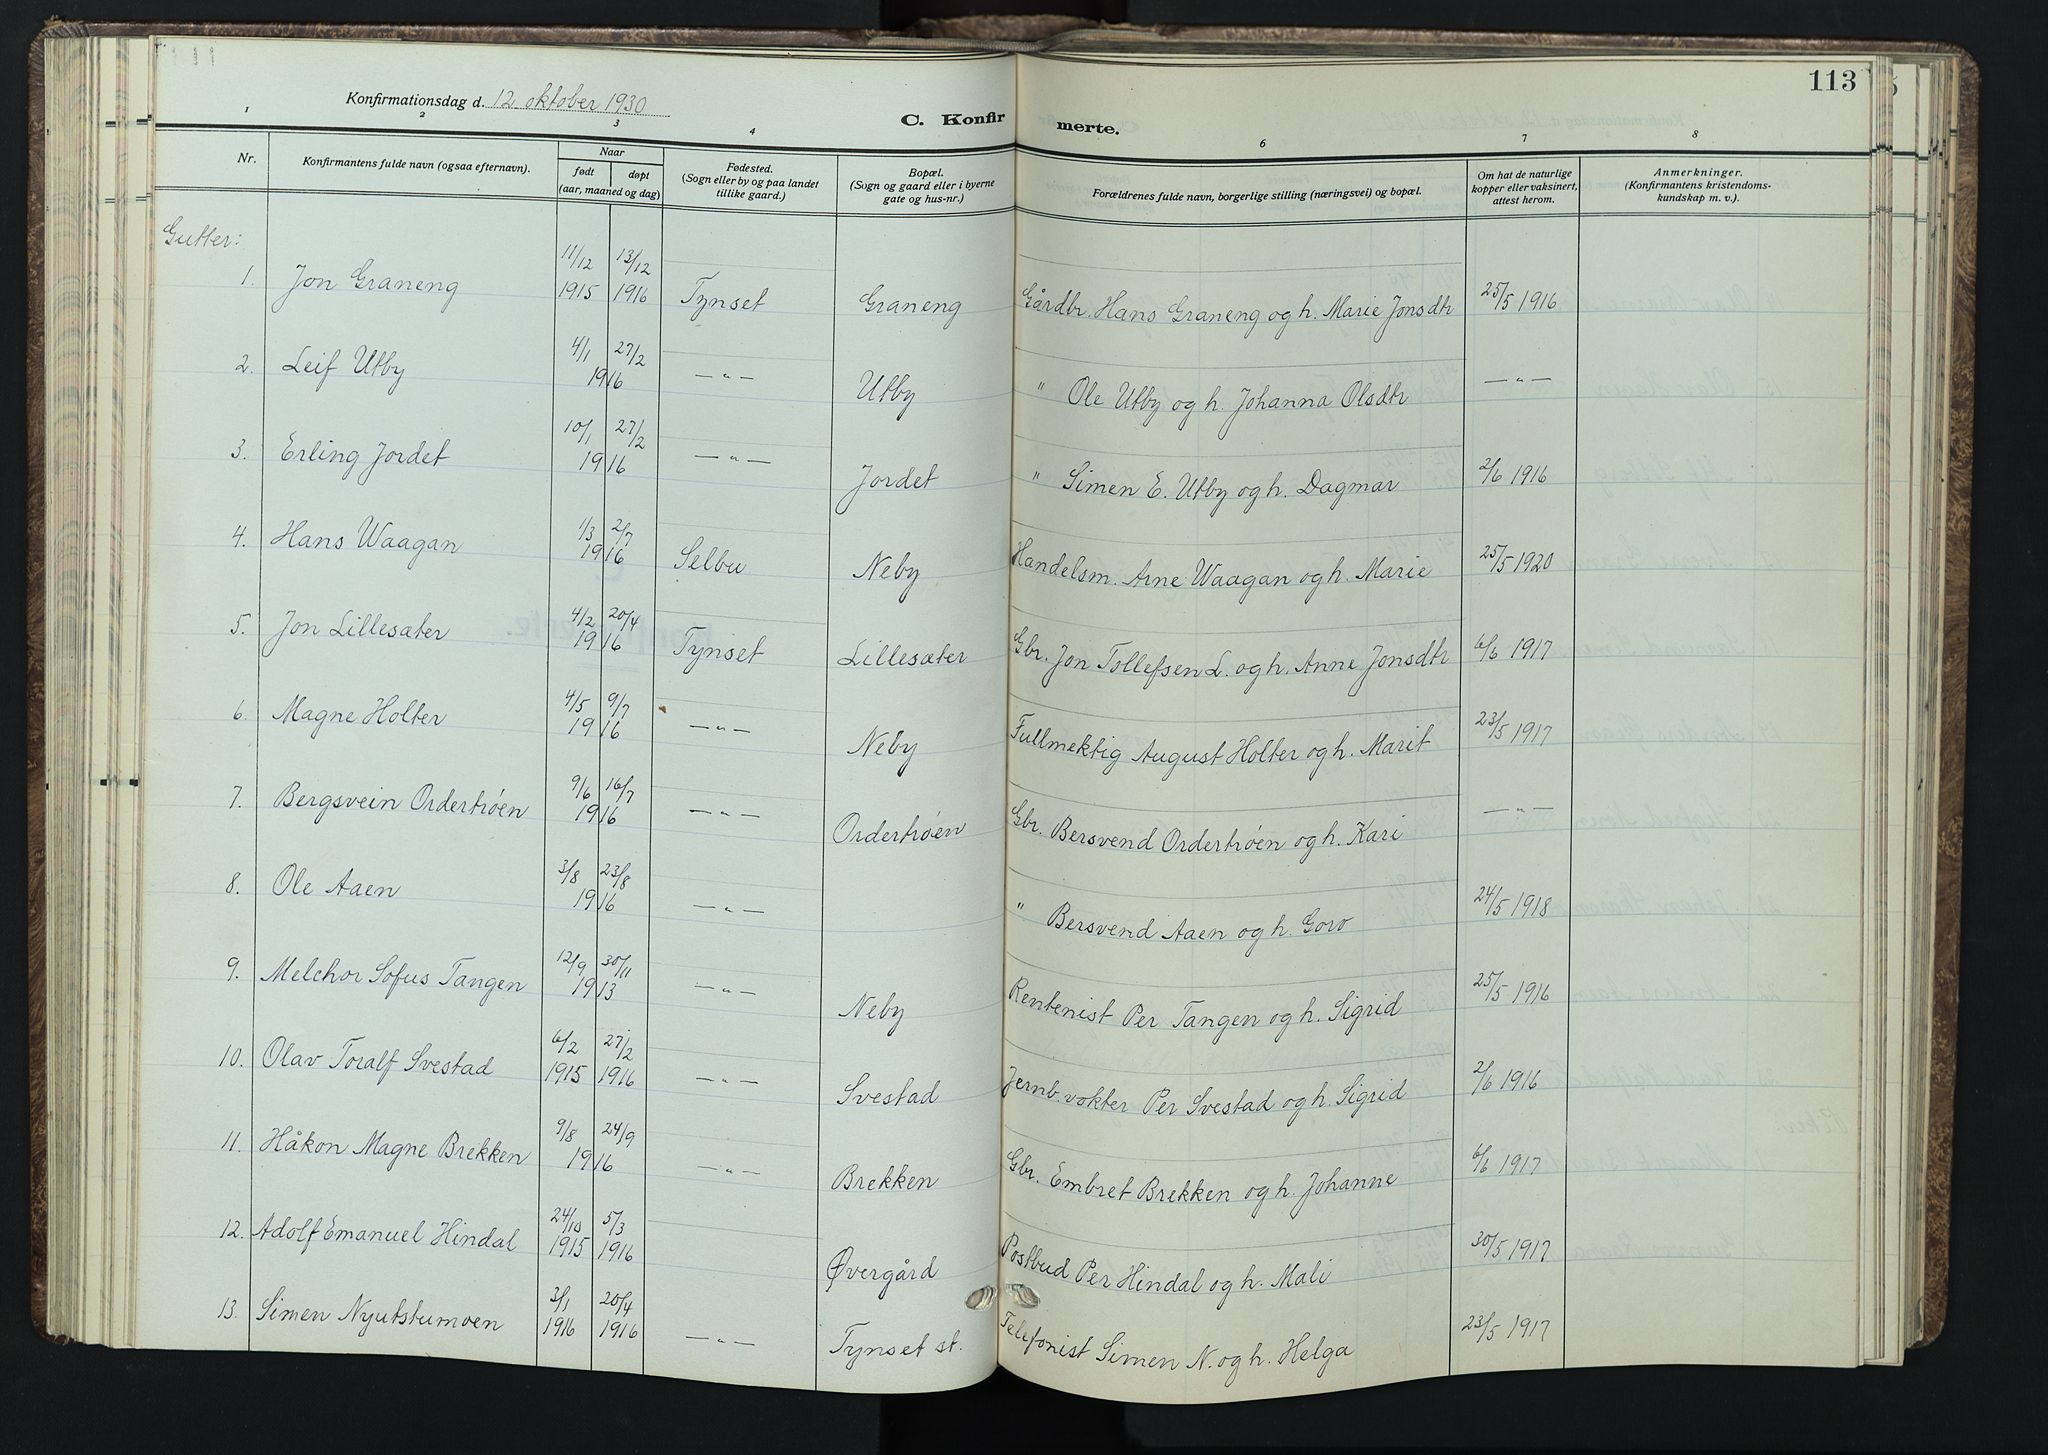 113
Konfirmationsdag d. 12 oktober 1930
C. Konfirmerte.
1 2 3 4 6 7 8
Nr.
Konfirmantens fulde navn (ogsaa efternavn).
Naar
født døpt
(aar, maaned og dag)
Fødested.
(Sogn eller by og paa landet
tillike gaard.)
Bopæl.
(Sogn og gaard eller i byerne
gate og hus-nr.)
Forældrenes fulde navn, borgerlige stilling (næringsvei) og bopæl.
Om hat de naturlige
kopper eller vaksinert,
attest herom.
Anmerkninger.
(Konfirmantens kristendoms-
kundskap m. v.).
Gutter:
1. Jon Graneng 11/12 1915 13/12 1916 Tynset Graneng Gårdbr. Hans Graneng og h. Marie Jonsdtr 25/5 1916
2. Leif Utby 4/1 27/2 1916 —〃— Utby 〃 Ole Utby og h. Johanna Olsdtr —〃—
3. Erling Jordet 10/1 27/2 1916 —〃— Jordet 〃 Simen E. Utby og h. Dagmar 2/6 1916
4. Hans Waagan 1/3 2/7 1916 Selbu Neby Handelsm. Arne Waagan og h. Marie 25/5 1920
5. Jon Lillesæter 4/2 20/4 1916 Tynset Lillesæter Gbr. Jon Tollefsen L. og h. Anne Jonsdtr 6/6 1917
6. Magne Holter 4/5 9/7 1916 —〃— Neby Fullmektig August Holter og h. Marit 23/5 1917
7. Bergsvein Ordertrøen 9/6 16/7 1916 —〃— Ordertrøen Gbr. Bersvend Ordertrøen og h. Kari —〃—
8. Ole Aaen 3/8 23/8 1916 —〃— 〃 Bersvend Aaen og h. Goro 24/5 1918
9. Melchor Sofus Tangen 12/9 30/11 1913 —〃— Neby Rentenist Per Tangen og h. Sigrid 25/5 1916
10. Olav Toralf Svestad 6/2 1915 27/2 1916 —〃— Svestad Jernb.vokter Per Svestad og h. Sigrid 2/6 1916
11. Håkon Magne Brekken 9/8 24/9 1916 —〃— Brekken Gbr. Embret Brekken og h. Johanne 6/6 1917
12. Adolf Emanuel Hindal 24/10 1915 5/3 1916 Øvergård Postbud Per Hindal og h. Mali 30/5 1917
13. Simen Nyutstumoen 3/1 1916 20/4 1916 —〃— Tynset st. Telefonist Simen N. og h. Helga 23/5 1917